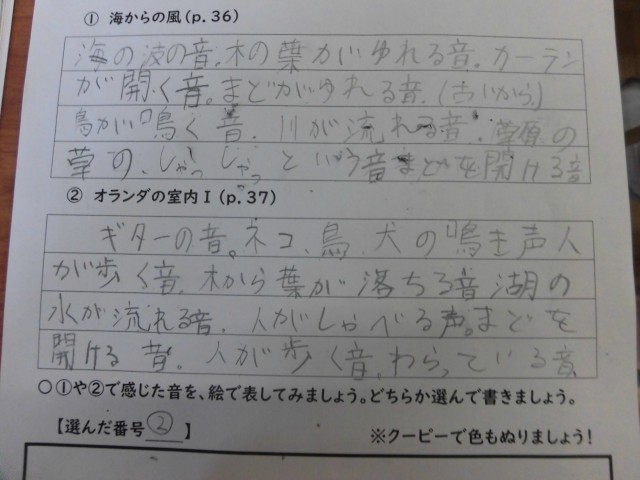 ① 海からの風(p.36)
海の波の音、木の葉がゆれる音。カーテン
が開く音。まどがゆれる音、(古いから)
鳥が鳴く音、川が流れる音、草原の
草の、しゃっしゃっという音まどを開ける音
② オランダの室内Ⅰ(p.37)
ギターの音。ネコ、鳥、犬の鳴き声人
が歩く音、木から葉が落ちる音湖の
水が流れる音、人がしゃべる声。まどを
開ける音、人が歩く音、わらっている音
○①や②で感じた音を、絵で表してみましょう。どちらか選んで書きましょう。
【選んだ番号 ② 】 ※クーピーで色もぬりましょう!